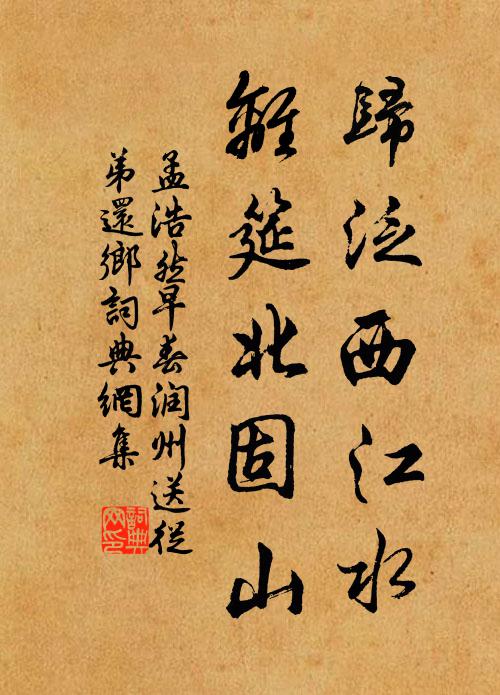 歸泛西江水
離筵北固山
孟浩然早春润州送從
弟還鄉詞典網集
詞典網印